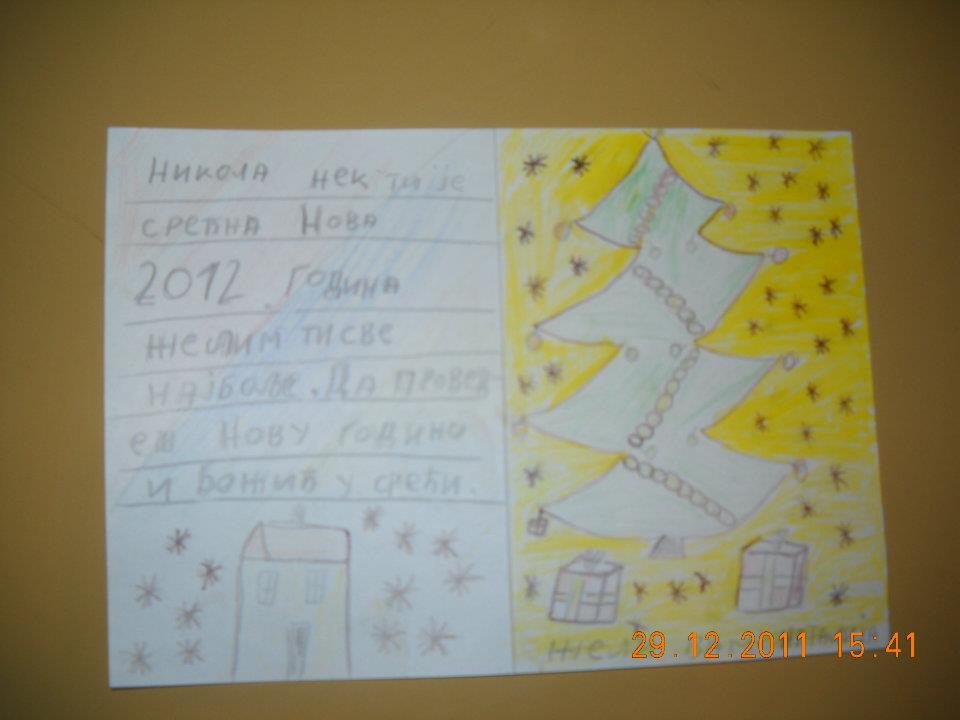 Никола нек ти је
срећна Нова
2012. година
желим ти све
најбоље. Да провед
еш Нову годино
и Божић у срећи.
29.12.2011 15:41